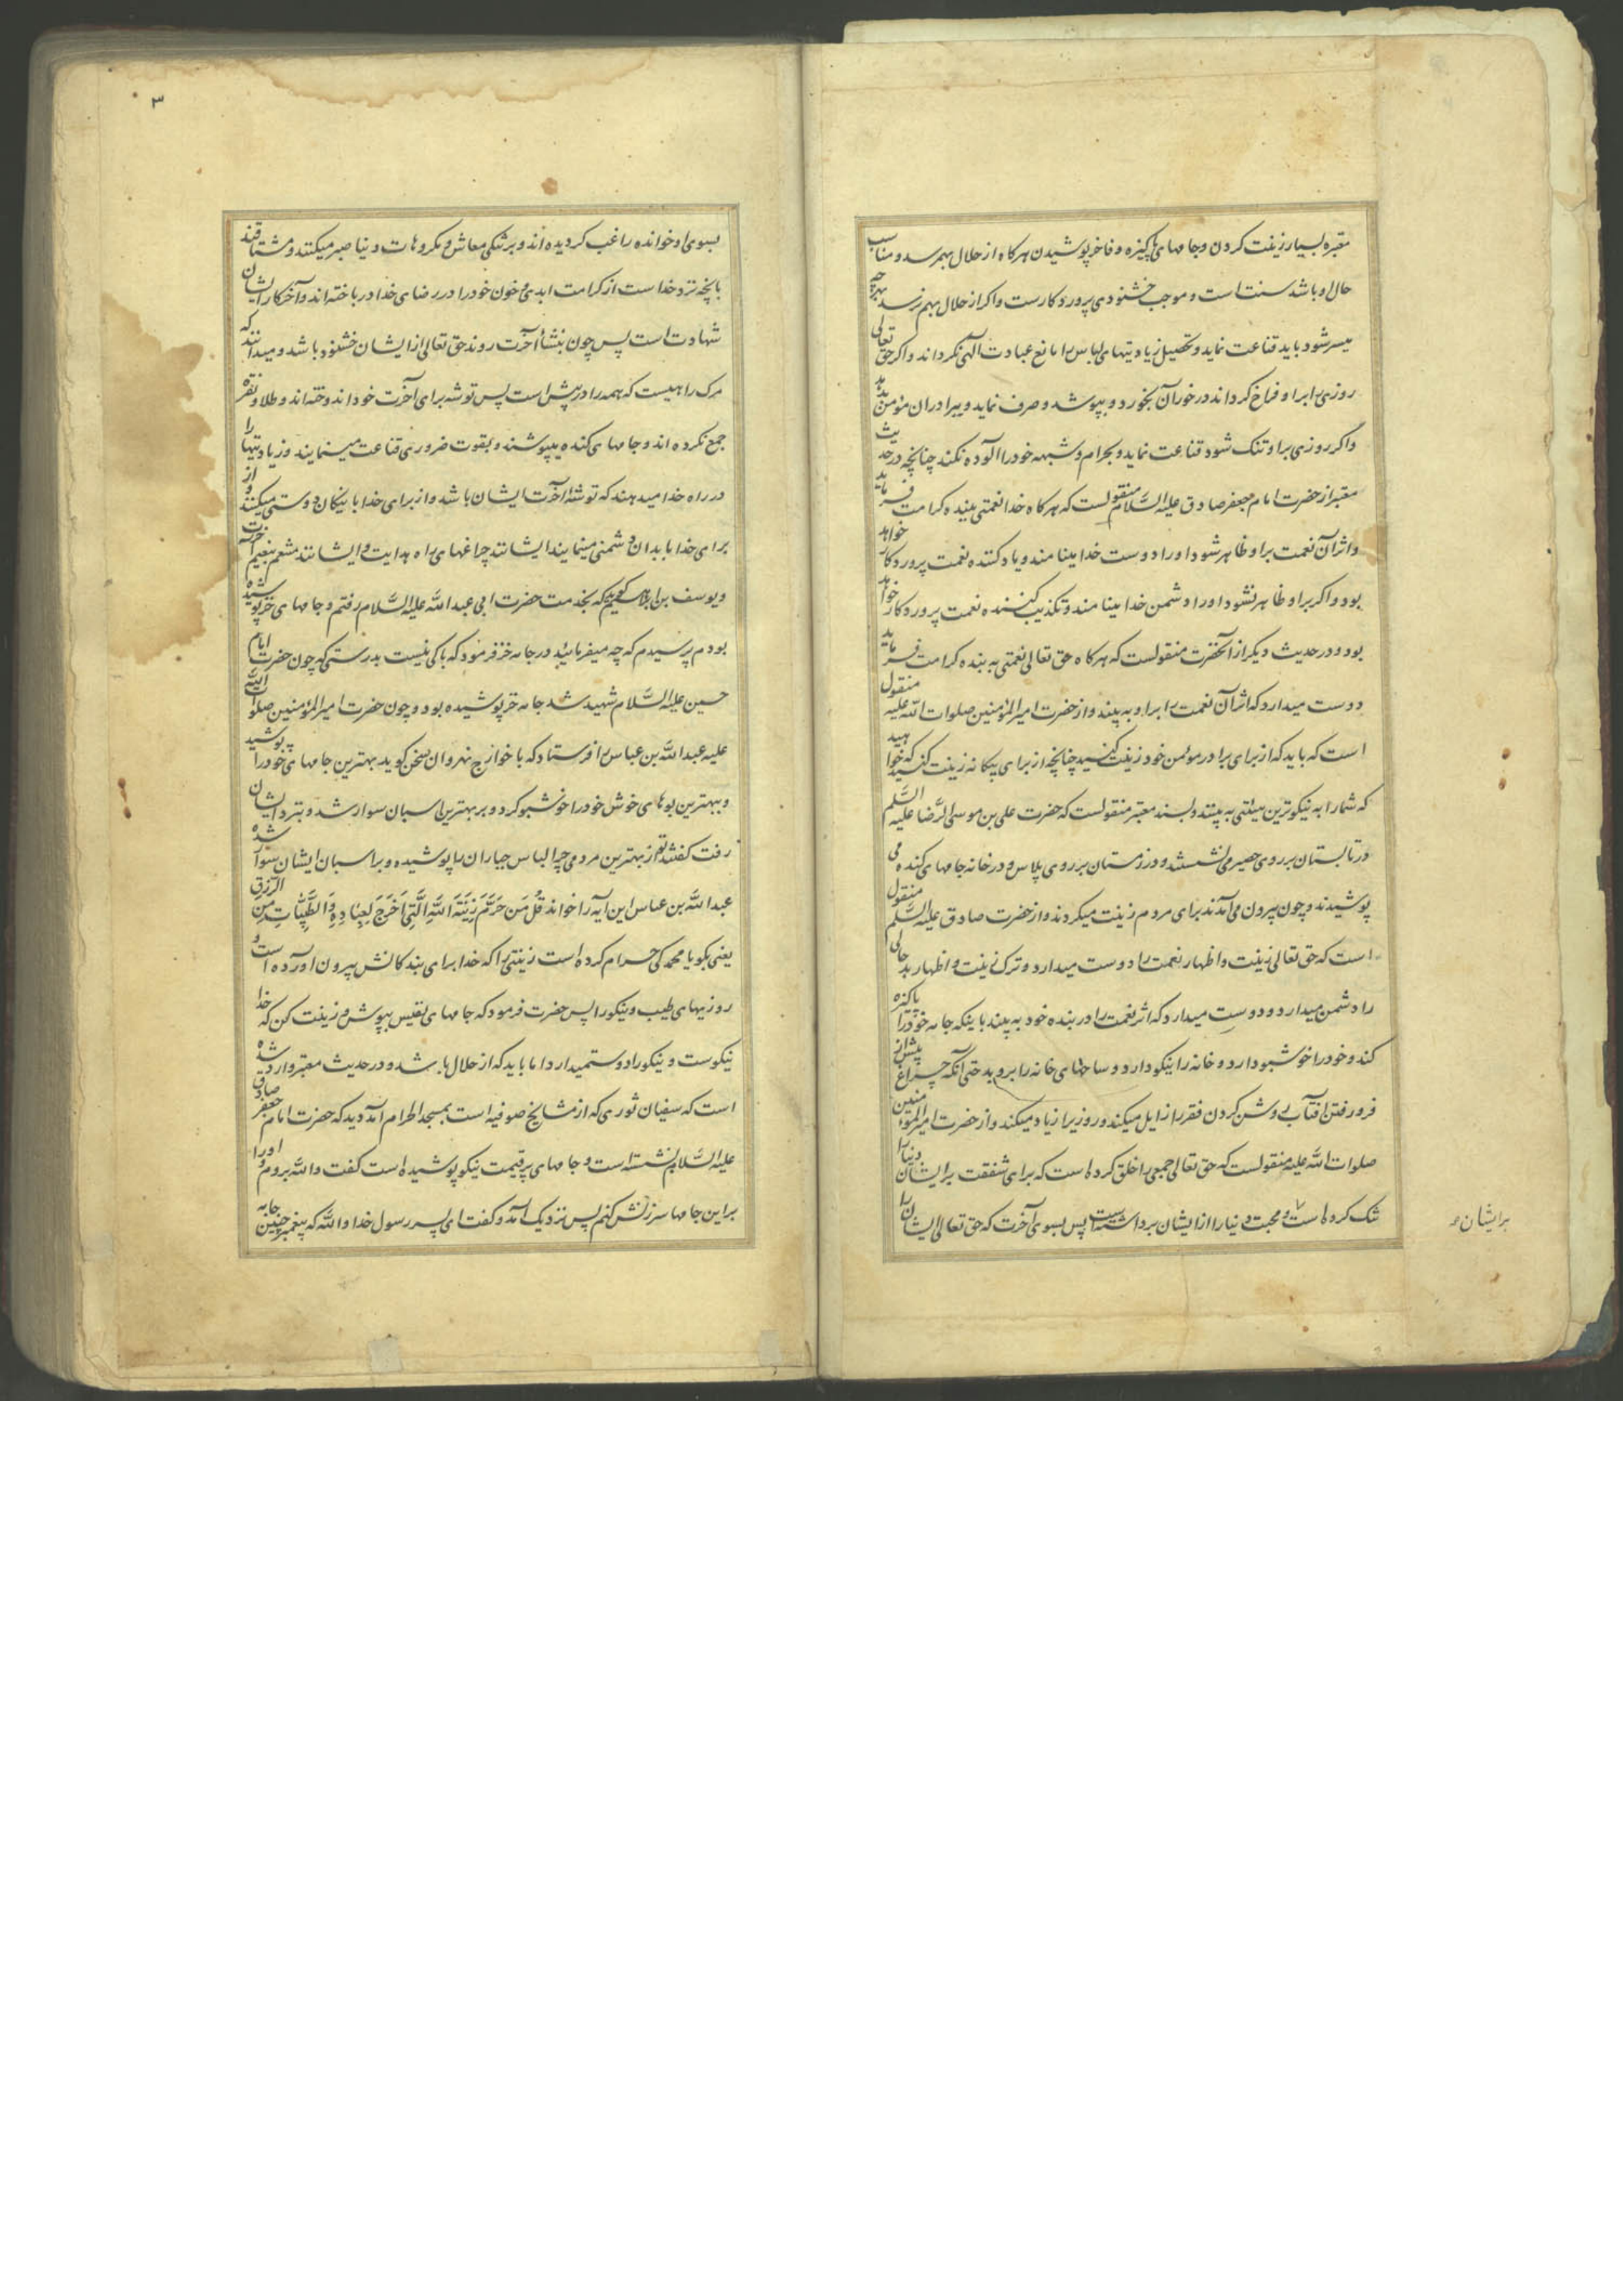 معتبره بسیار زینت کردن و جامهای پاکیزه و فاخر پوشیدن هرکاه از حلال بهمرسد و مناسب
حال او باشد سنت است و موجب خشنودی پروردکارست و اکر از حلال بهم نرسد بهرچه
میسر شود باید قناعت نماید و تحصیل زیادتیهای لباس را مانع عبادت الهی نکرداند و اکر حق تعالی
روزی را بر او فراخ کرداند در خور آن بخورد و بپوشد و صرف نماید و ببرادران مؤمن بدهد
و اکر روزی بر او تنک شود قناعت نماید و بحرام و شبهه خود را آلوده نکند چنانچه در حدیث
معتبر از حضرت امام جعفر صادق علیه السَّلام منقولست که هرکاه خدا نعمتی ببنده کرامت فرماید
و اثر آن نعمت بر او ظاهر شود او را دوست خدا مینامند و یادکننده نعمت پروردکار خواهد
بود و اکر بر او ظاهر نشود او را دشمن خدا مینامند و تکذیب کننده نعمت پروردکار خواهد
بود و در حدیث دیکر از آنحضرت منقولست که هرکاه حق تعالی نعمتی به بنده کرامت فرماید
دوست میدارد که اثر آن نعمت را بر او به بیند و از حضرت امیر المؤمنین صلوات الله علیه منقول
است که باید که از برای برادر مومن خود زینت کنید چنانچه از برای بیکانه زینت کنید که خواهید
که شما را به نیکوترین هیئتی به بیند و بسند معتبر منقولست که حضرت علی بن موسی الرّضا علیه السَّلم
در تابستان بر روی حصیر می نشستند و در زمستان بر روی پلاس و در خانه جامهای کنده می
پوشیدند و چون بیرون می آمدند برای مردم زینت میکردند و از حضرت صادق علیه السَّلم منقول
است که حق تعالی زینت و اظهار نعمت را دوست میدارد و ترک زینت و اظهار بدحالی
را دشمن میدارد و دوست میدارد که اثر نعمت را در بنده خود به بیند باینکه جامه خود را پاکیزه
کند و خود را خوشبو دارد و خانه را نیکو دارد و ساحتهای خانه را بروبد حتی آنکه چراغ پیش از
فرو رفتن آفتاب روشن کردن فقر را زایل میکند و روزی را زیاد میکند و از حضرت امیر المؤمنین
صلوات الله علیه منقولست که حق تعالی جمعی را خلق کرده است که برای شفقت بر ایشان دنیا را
تنک کرده است و محبت دنیا را از ایشان برداشته است پس بسوی آخرت که حق تعالی ایشان را
بر ایشان
۳
بسوی او خوانده راغب کردیده اند و بر تنکی معاش و مکروهات دنیا صبر میکنند و مشتاقند
بانچه نزد خداست از کرامت ابدی و خون خود را در رضای خدا درباخته اند و آخر کار ایشان
شهادت است پس چون بنشأ آخرت روند حق تعالی از ایشان خشنود باشد و میدانند که
مرک راهیست که همه را در پیش است پس توشه برای آخرت خود اندوخته اند و طلا و نقره
جمع نکرده اند و جامهای کنده میپوشند و بقوت ضروری قناعت مینمایند و زیادتیها را
در راه خدا میدهند که توشه آخرت ایشان باشد و از برای خدا با نیکان دوستی میکنند و از
برای خدا با بدان دشمنی مینمایند ایشانند چراغهای راه هدایت و ایشانند متنعم بنعیم آخرت
و یوسف بن ابراهیم کوید که بخدمت حضرت ابی عبد الله علیه السَّلام رفتم و جامهای خز پوشیده
بودم پرسیدم که چه میفرمائید در جامه خز فرمود که باکی نیست بدرستی که چون حضرت امام
حسین علیه السَّلام شهید شد جامه خز پوشیده بود و چون حضرت امیر المؤمنین صلوات الله
علیه عبد الله بن عباس را فرستاد که با خوارج نهروان سخن کوید بهترین جامهای خود را پوشید
و ببهترین بوهای خوش خود را خوشبو کرد و بر بهترین اسبان سوار شد و بنزد ایشان
رفت کفتند تو از بهترین مردمی چرا لباس جباران را پوشیده و بر اسبان ایشان سوار شده
عبد الله بن عباس این آیه را خواند قُل مَن حَرَّمَ زِینَةَ اللهِ الَّتِی اَخرَجَ لِعِبادِهِ وَ الطَّیِّباتِ مِنَ الرِّزقِ
یعنی بکو یا محمد کی حرام کرده است زینتی را که خدا برای بندکانش بیرون آورده است و
روزیهای طیب و نیکو را پس حضرت فرمود که جامهای نفیس بپوش و زینت کن که خدا
نیکوست و نیکو را دوستمیدارد اما باید که از حلال باشد و در حدیث معتبر وارد شده
است که سفیان ثوری که از مشایخ صوفیه است بمسجد الحرام آمد دید که حضرت امام جعفر صادق
علیه السَّلام نشسته است و جامهای پر قیمت نیکو پوشیده است کفت والله بروم و او را
بر این جامها سرزنش کنم پس نزدیک آمد و کفت ای پسر رسول خدا والله که پیغمبر چنین جامه